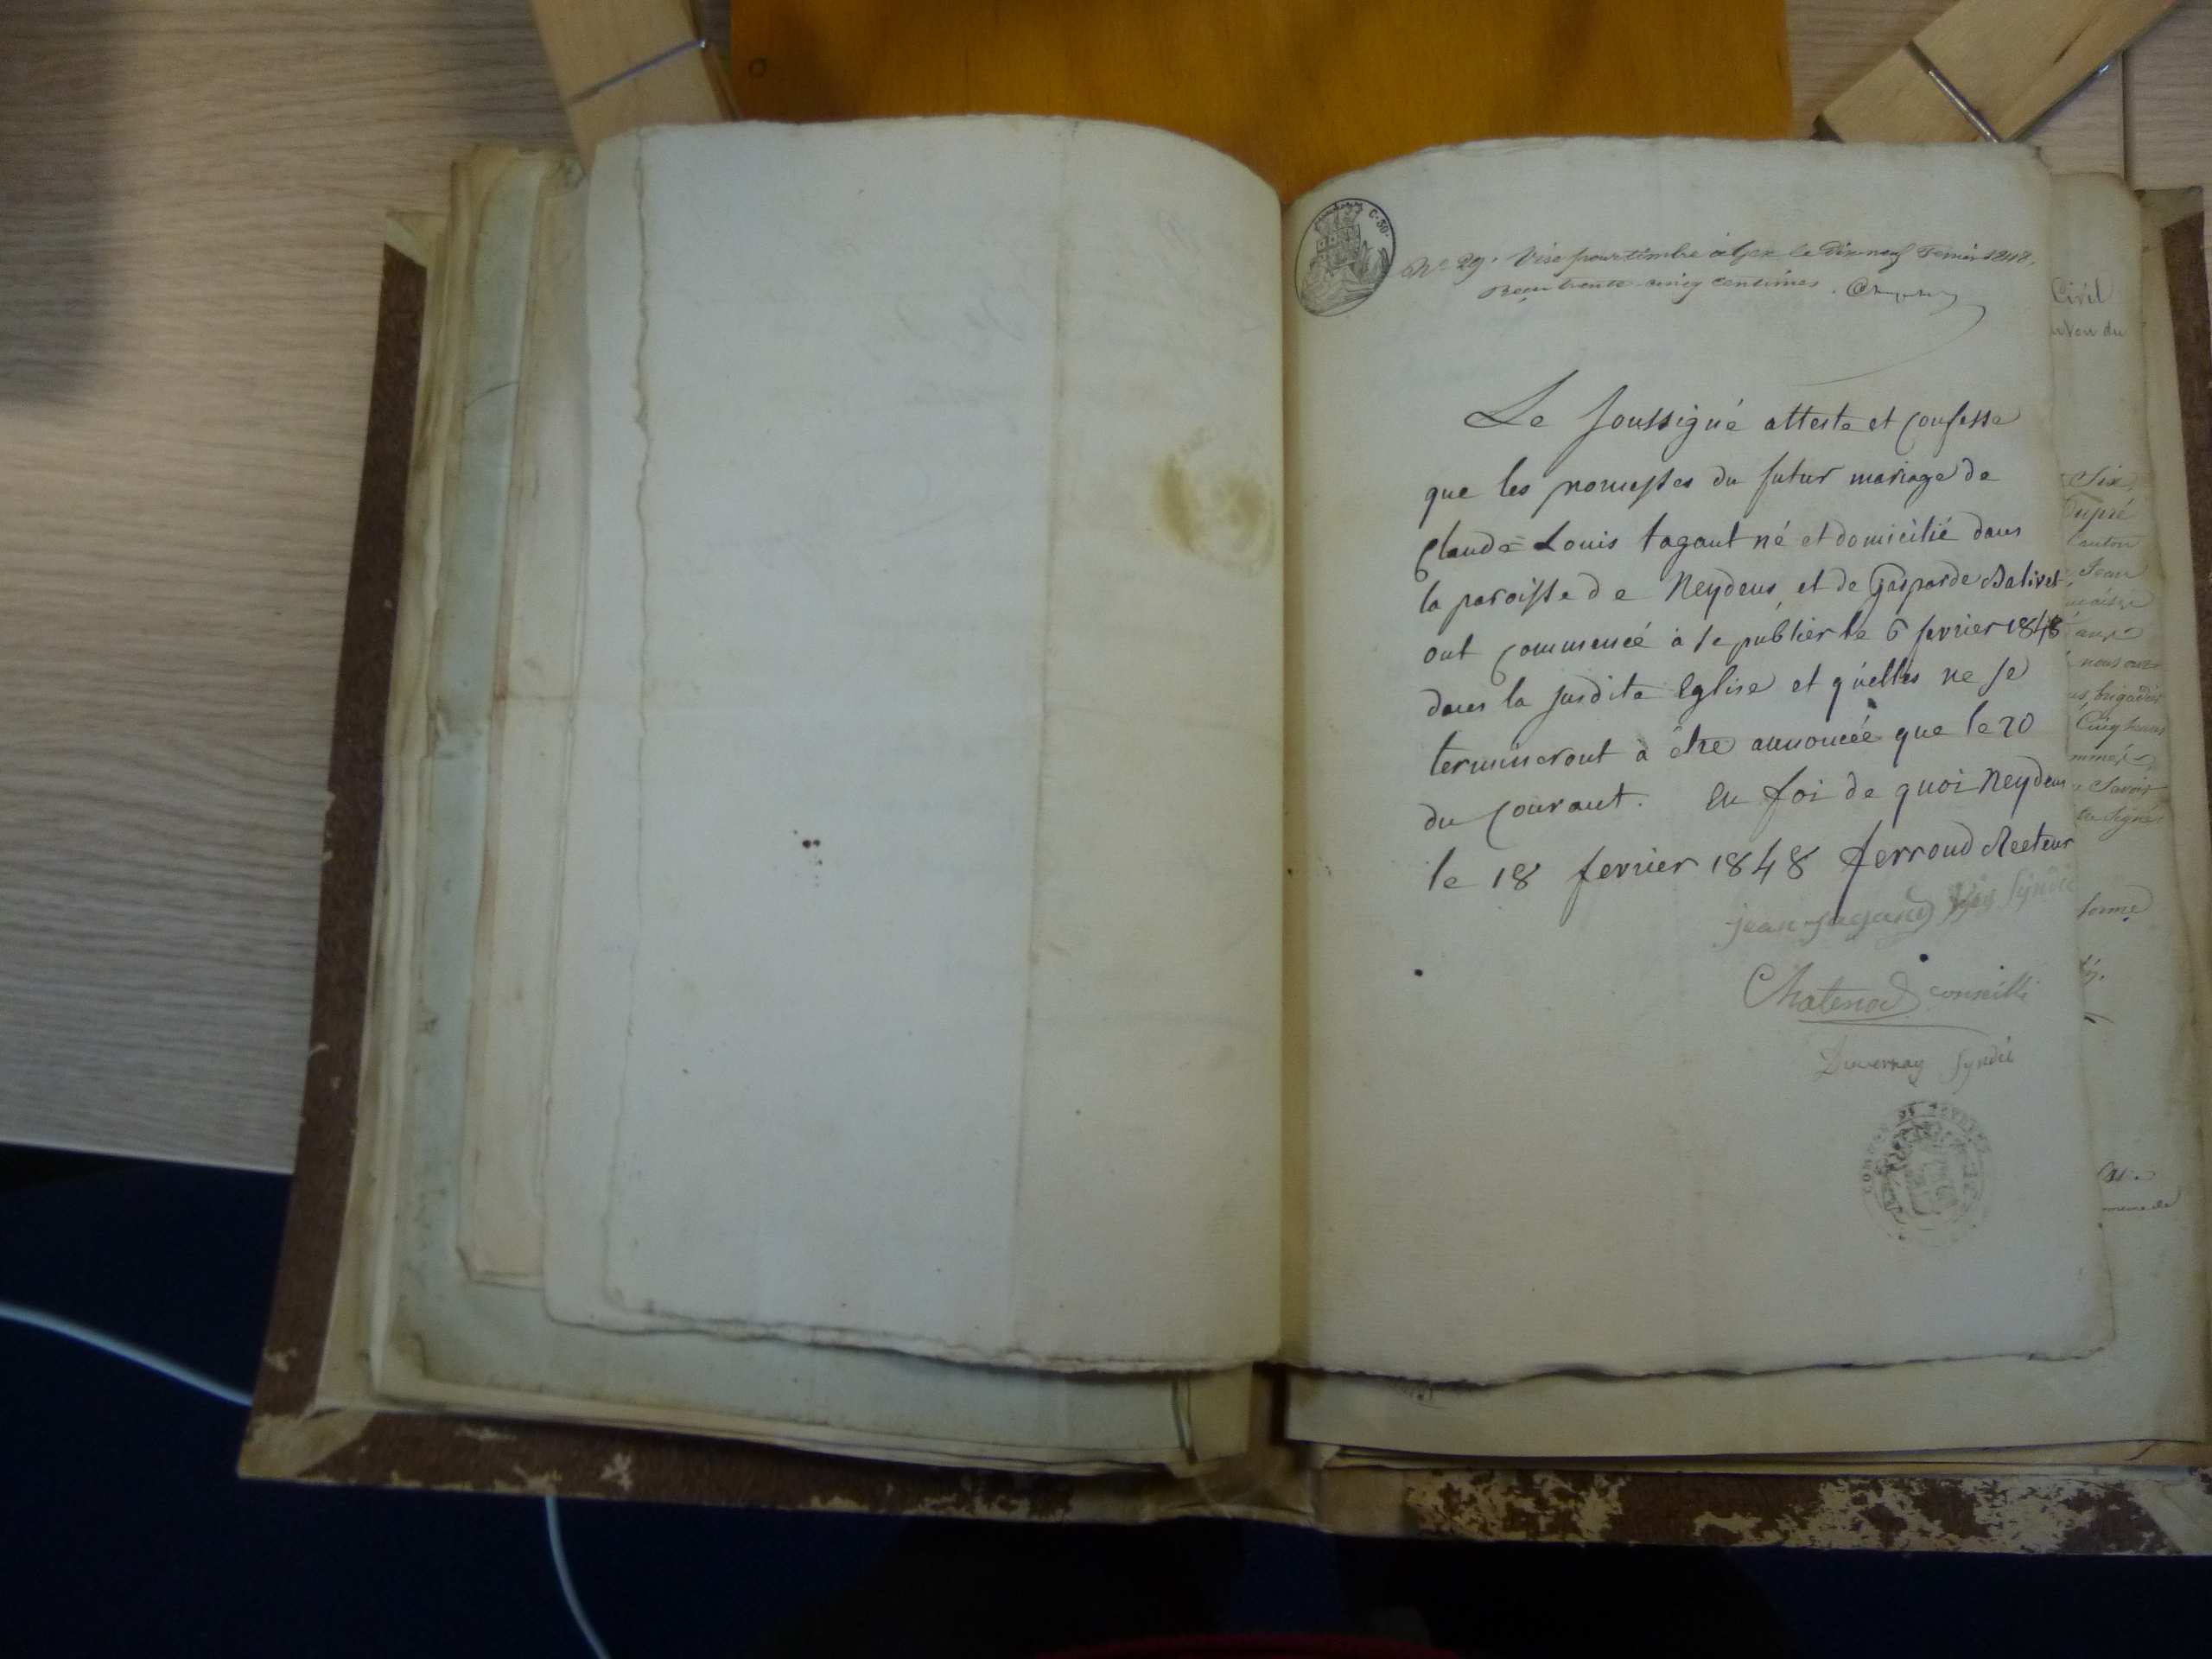 C. 30.
N° 29. Visé pour timbre à Gex le Dix-neuf Fevrier 1848.
Reçu trente-cinq centimes.
Le soussigné atteste et confesse
que les promesses du futur mariage de
Claude=Louis tagant né et domicilié dans
la paroisse de Neydens, et de Gasparde Balivet
ont commencé à se publier le 6 fevrier 1848
dans la susdite Eglise et qu'elles ne se
termineront à être annoncée que le 20
du courant. En foi de quoi Neydens
le 18 fevrier 1848 ferroud Recteur
jean tagand Syndic
Chatenod conseillé
Duvernay Syndic
COMMUNE DE
Civil
Six
Dupré
canton
Jean
aux
nous avo
brigadier
Cinq
Savoir
signé
forme